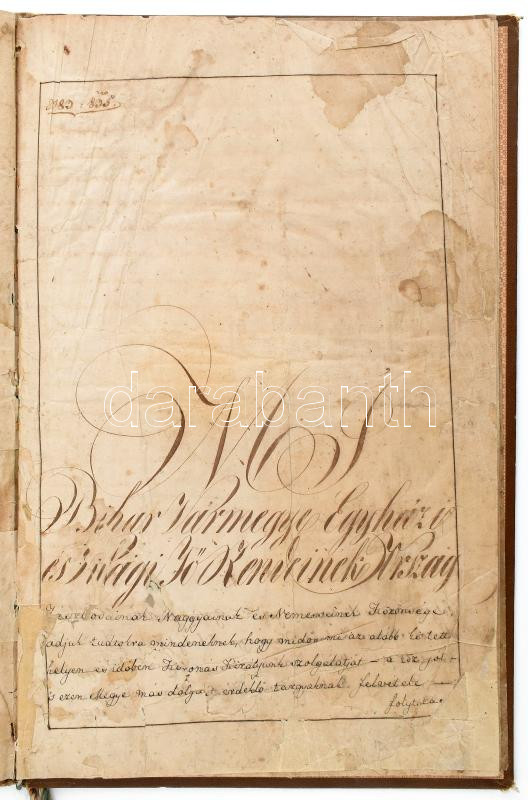 Mi
Bihar Vármegye Egyházi
és Világi Fő Rendeinek Ország
Zászlósainak Naggyainak és Nemeseinek Közönsége
adjuk tudtokra mindeneknek, hogy midőn mi az alább tisztelt
helyen és időben Koronás Királyunk szolgálatját – a köz jót
s ezen Megye más dolgait érdeklő tárgyaknak felvétele
folytata
darabanth